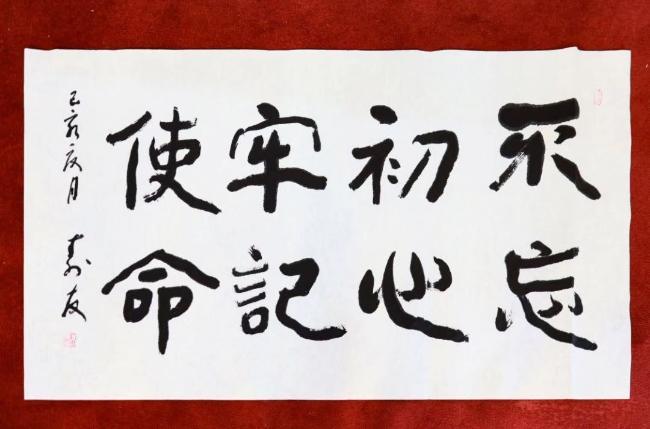 不忘
初心
牢記
使命
己亥夏月 壽友